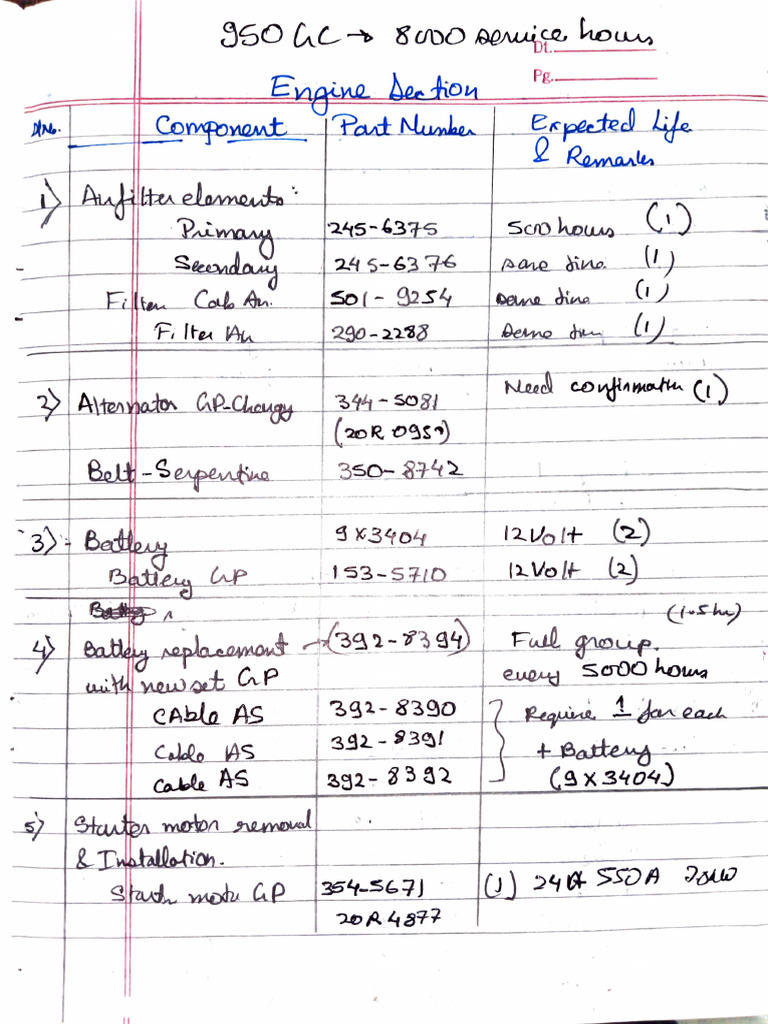 950 GC → 8000 service hours
Dt.
Pg.
Engine Section
Sl No. Component Part Number Expected Life & Remarks
1) Air filter elements:
Primary 245-6375 5000 hours (1)
Secondary 245-6376 same time (1)
Filter Cab Air. 501-9254 same time (1)
Filter Air 290-2288 same time (1)
2) Alternator GP-Charging 344-5081 Need confirmation (1)
(20R 0950)
Belt-Serpentine 350-8742
3) Battery 9X3404 12 Volt (2)
Battery GP 153-5710 12 Volt (2)
(1.5 hr)
4) Battery replacement → (392-8394) Full group.
with new set GP every 5000 hours
CAble AS 392-8390 Require 1 for each
Cable AS 392-8391 + Battery
Cable AS 392-8392 (9X3404)
5) Starter motor removal
& Installation.
Starter motor GP 354-5671 (1) 24 550A
20R4877